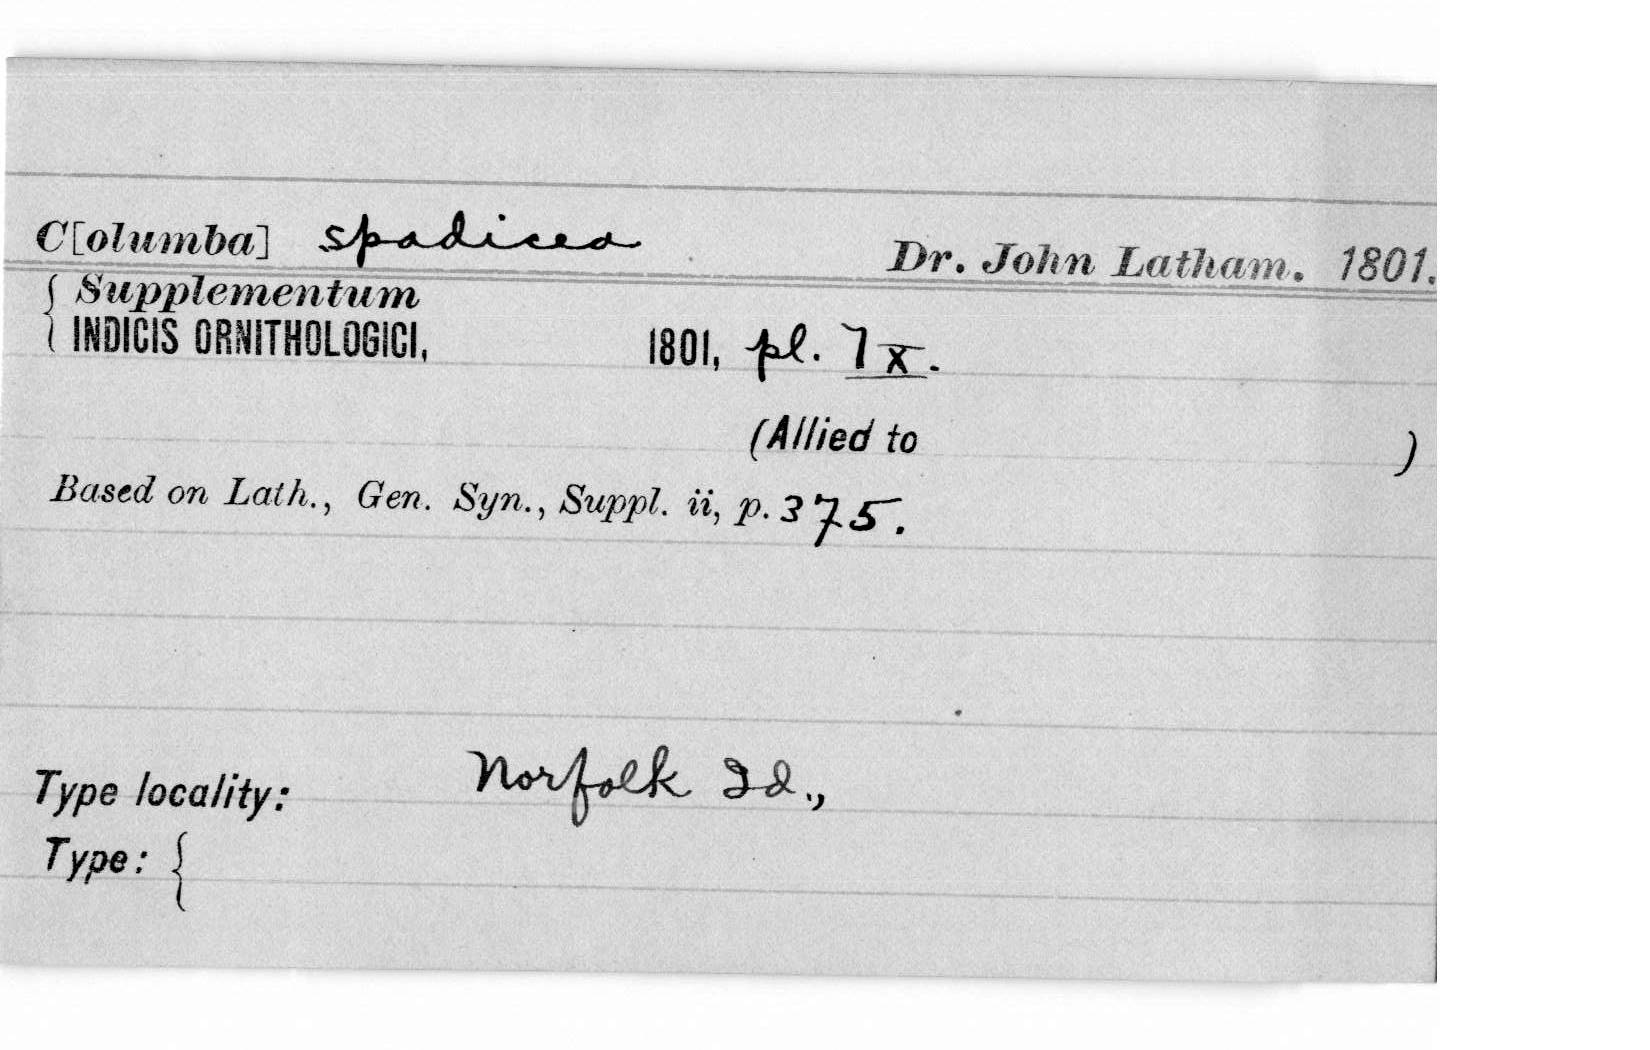 C[olumba] spadicea Dr. John Latham. 1801.
{ Supplementum
INDICIS ORNITHOLOGICI, 1801, pl.
(Allied to )
Based on Lath., Gen. Syn., Suppl. ii, p. 375.
Type locality: Norfolk Id.,
Type: {